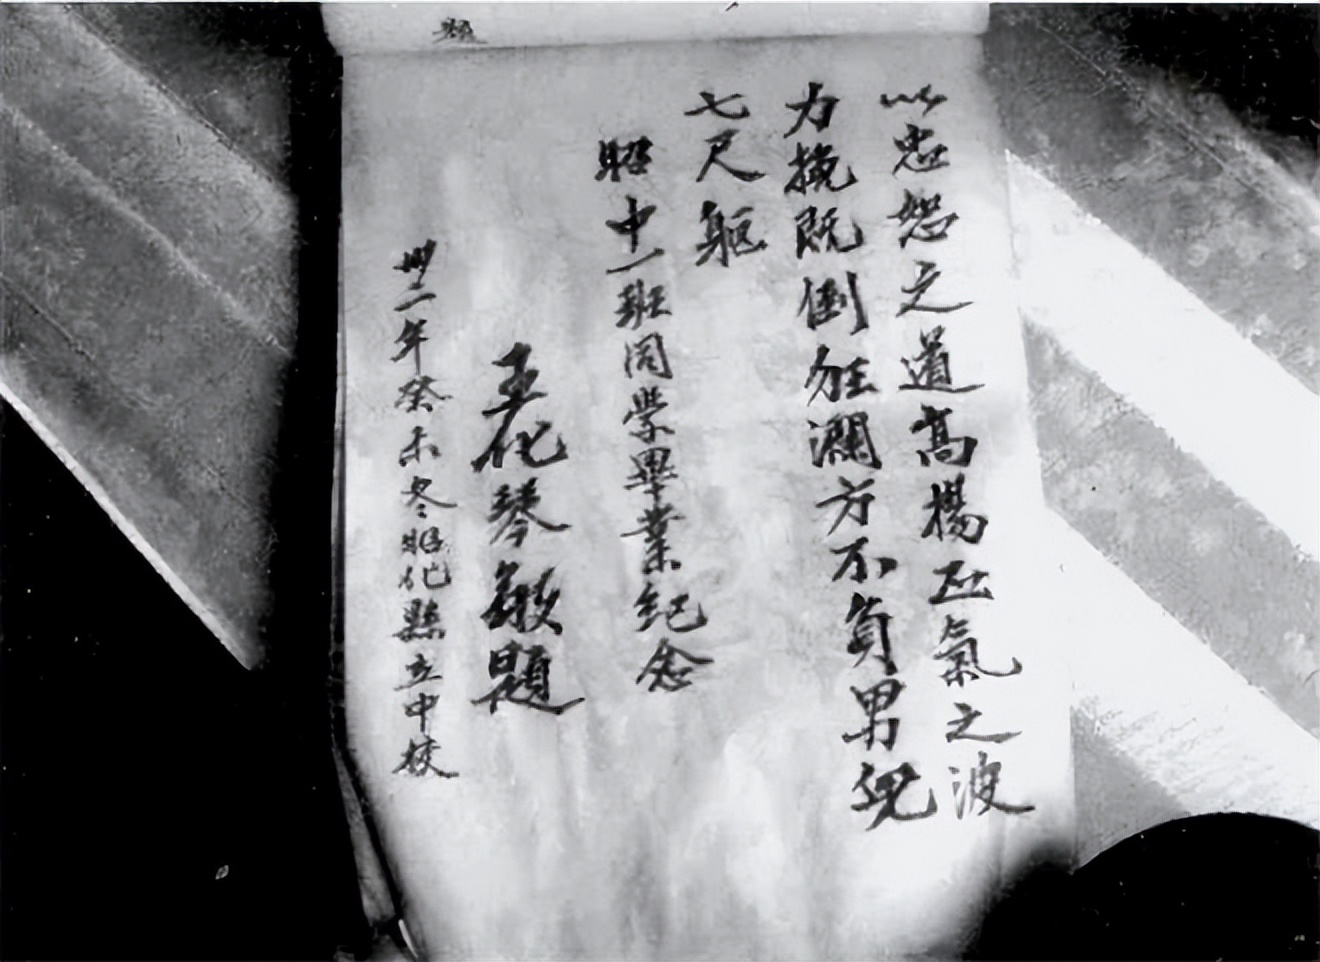 以忠恕之道高揚正氣之波
力挽既倒狂瀾方不負男兒
七尺軀
昭中一班同學畢業紀念
王化琴敬題
卅二年癸未冬昭化縣立中校
題